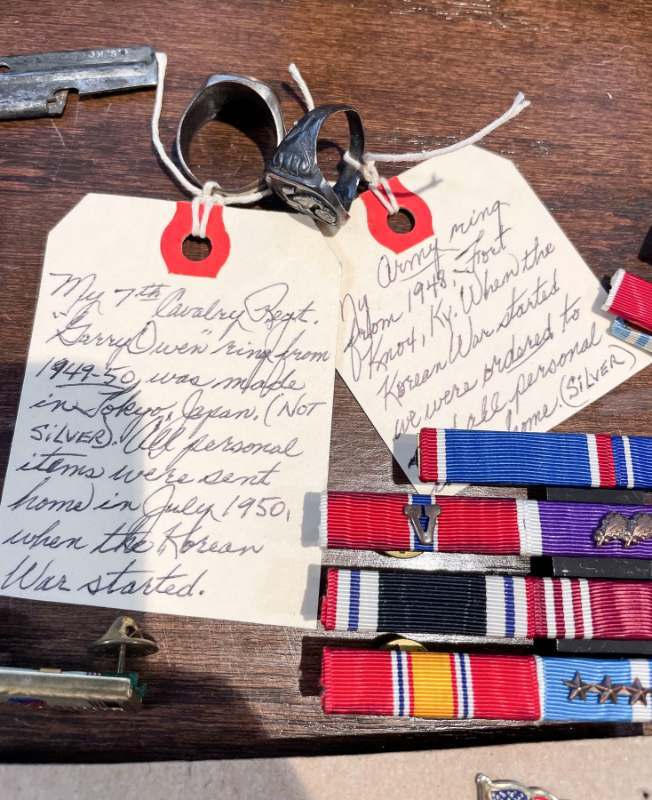 My 7th Cavalry Regt.
"Garry Owen" ring from
1949-50 was made
in Tokyo, Japan. (NOT
SILVER). All personal
items were sent
home in July 1950,
when the Korean
War started.
Army ring
from 1948, Fort
Knox, Ky. When the
Korean War started
we were ordered to
all personal
home. (SILVER)
V